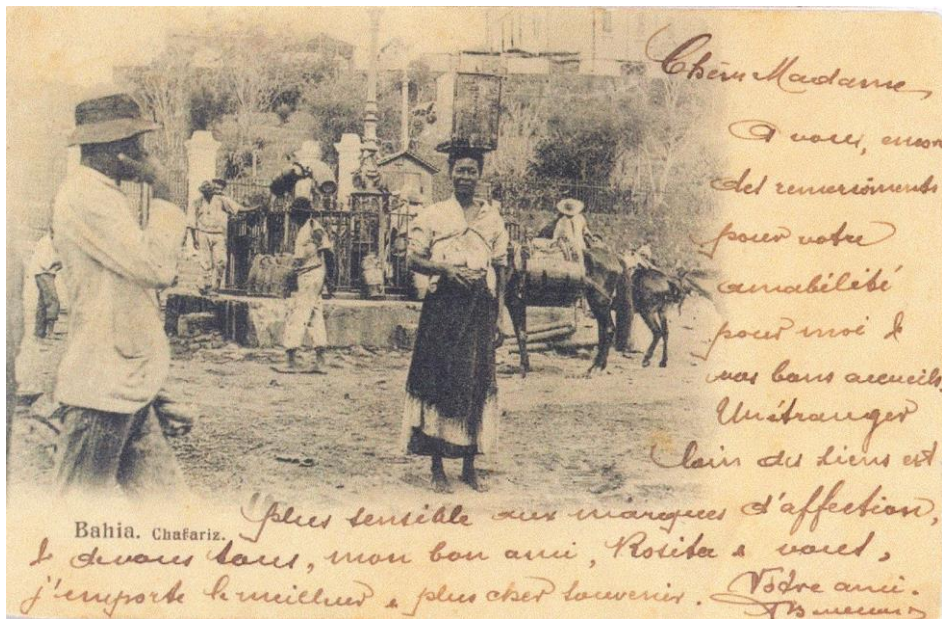 Chère Madame,
A vous, encor
des remerciments
pour votre
amabilité
pour moi &
vos bons accueils.
Un étranger
loin des siens est
plus sensible aux marques d'affection,
& de vous tous, mon bon ami, Rosita & vous,
j'emporte le meilleur & plus cher souvenir. Votre ami.
Bahia. Chafariz.